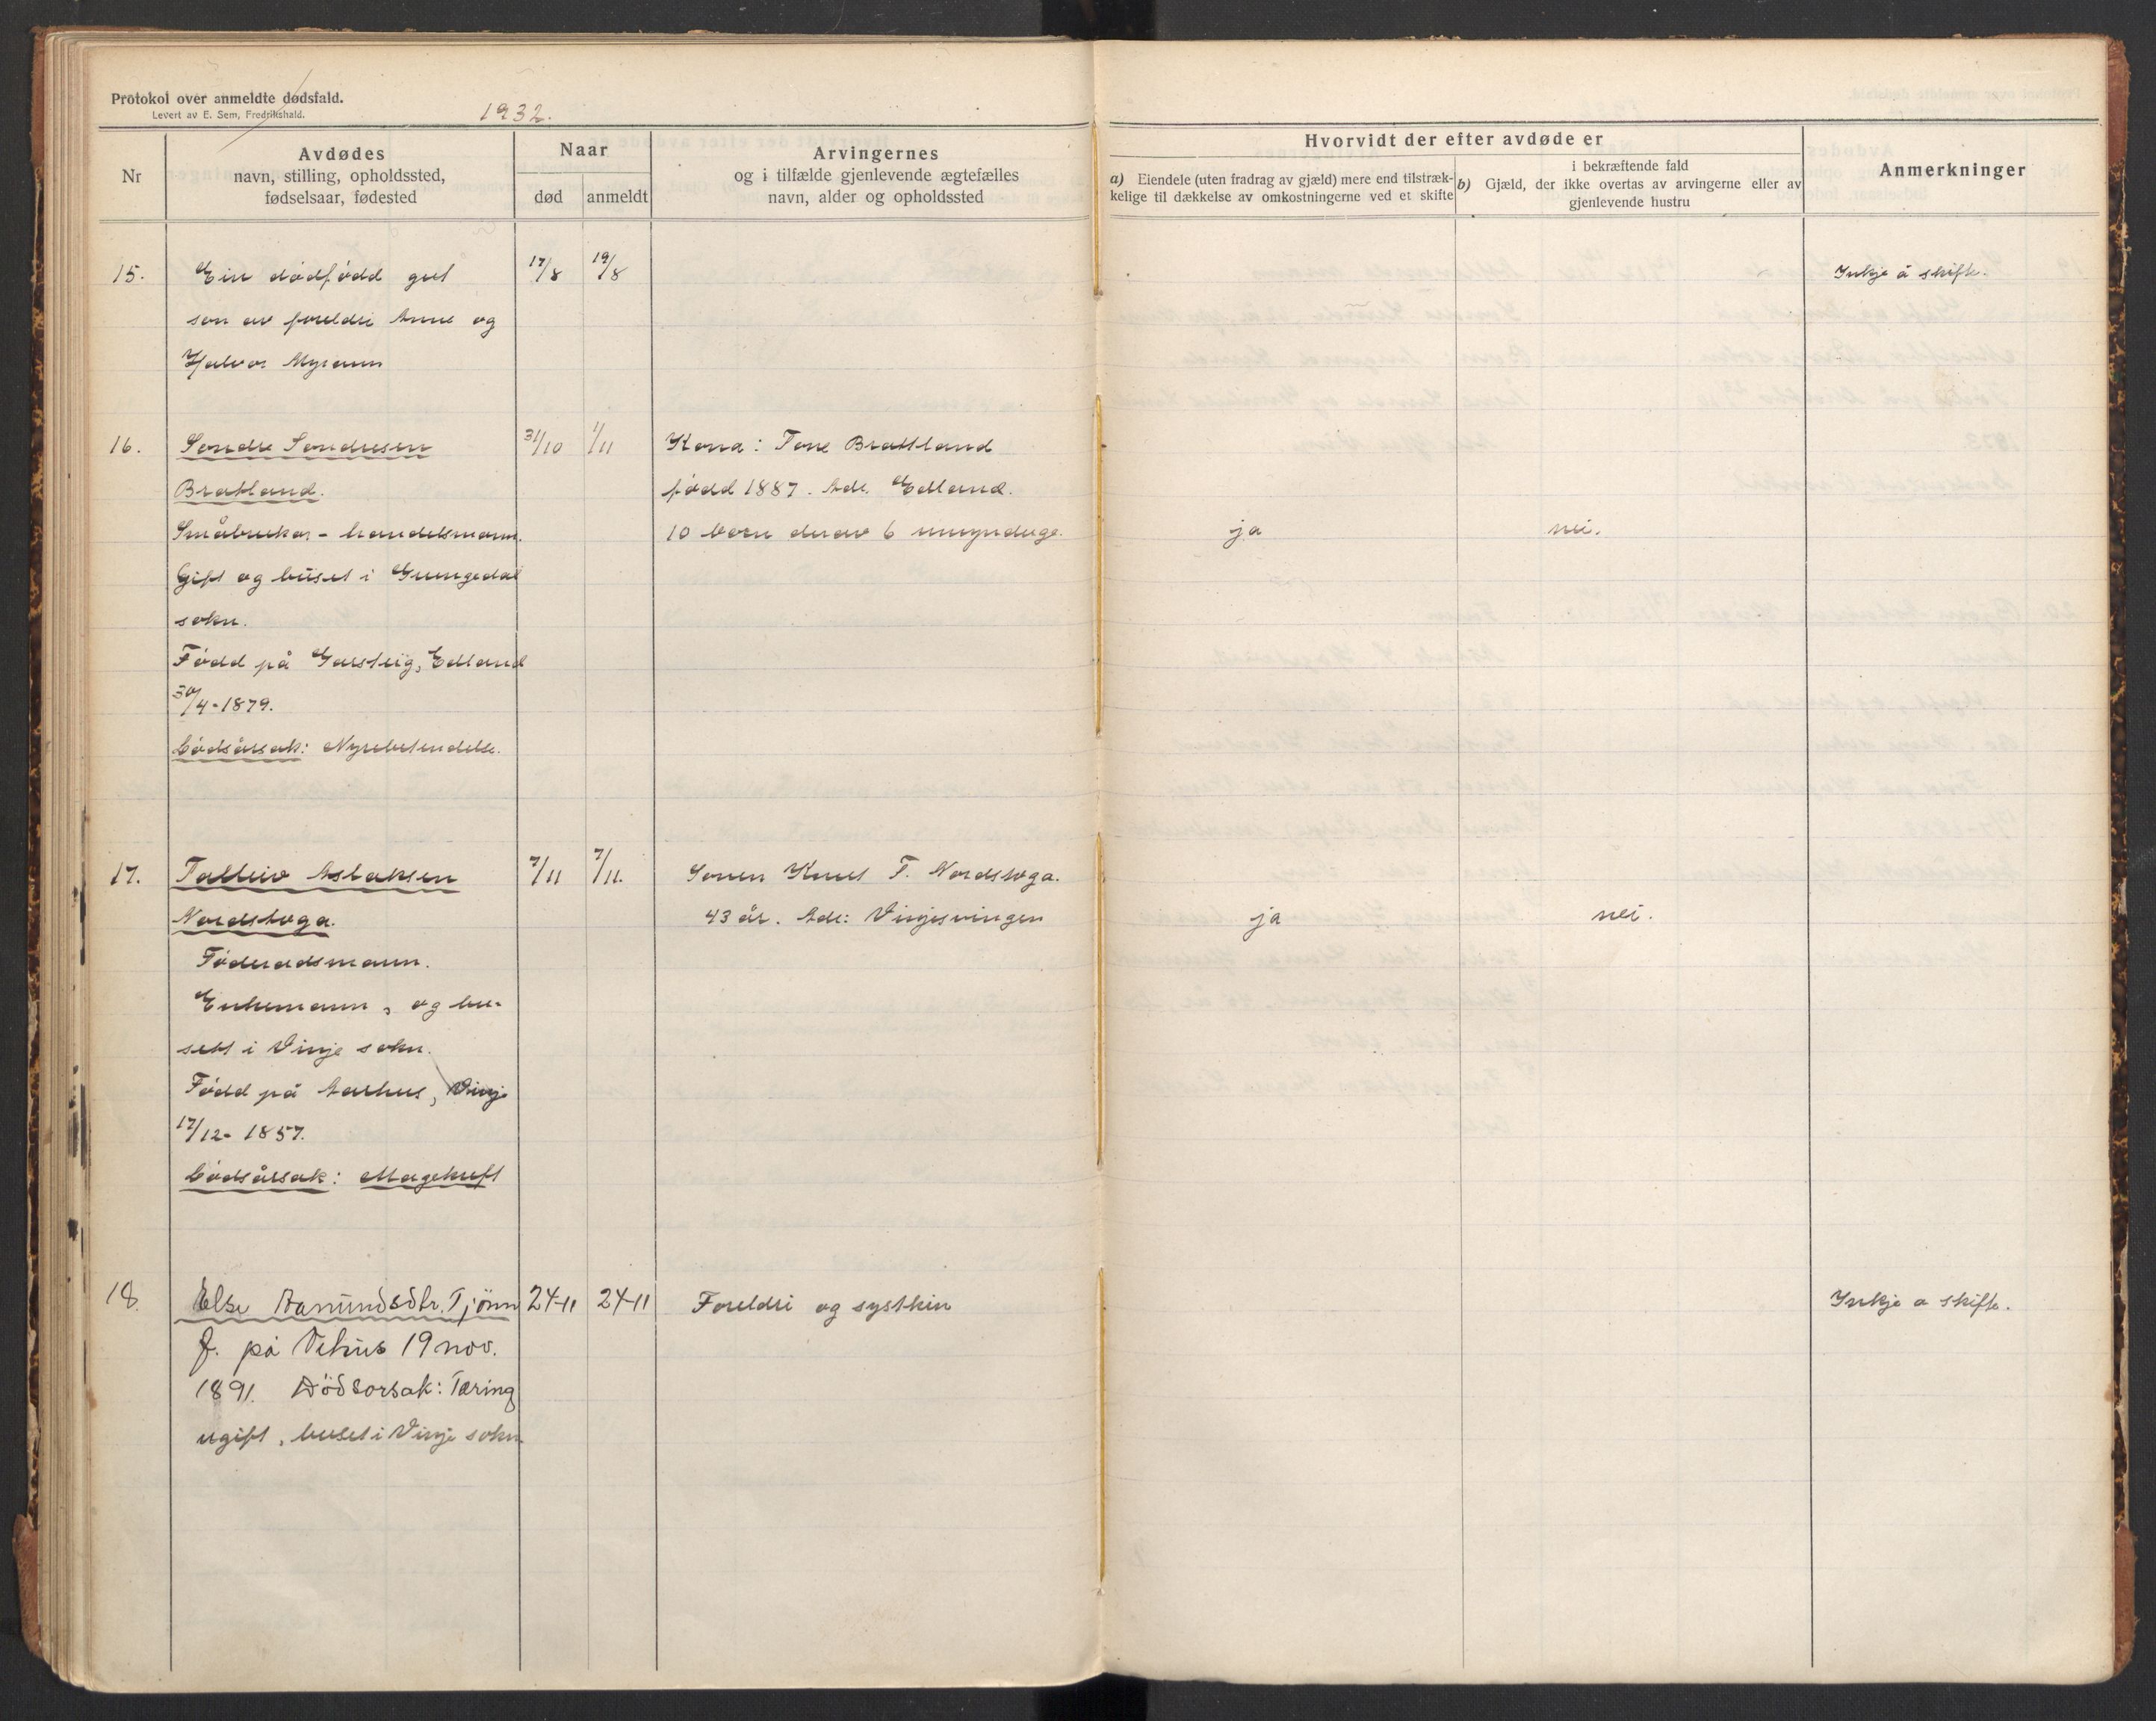 Protokol over anmeldte dødsfald.
Levert av E. Sem, Fredrikshald.
1932.
Nr
Avdødes
navn, stilling, opholdssted,
fødselsaar, fødested
Naar
død
anmeldt
Arvingernes
og i tilfælde gjenlevende ægtefælles
navn, alder og opholdssted
Hvorvidt der efter avdøde er
a) Eiendele (uten fradrag av gjæld) mere end tilstræk-
kelige til dækkelse av omkostningerne ved et skifte
i bekræftende fald
b) Gjæld, der ikke overtas av arvingerne eller av
gjenlevende hustru
Anmerkninger
15. Ein dødfødd gut 17/8 19/8 Inkje å skifte.
son av foreldri Anne og
Halvor Myrann
16. Sondre Sondresen 31/10 1/11 Kona: Tone Brattland
Bratland. fødd 1887. Adr. Edland.
Småbrukar - handelsmann. 10 born derav 6 umynduge. ja nei.
Gift og buset i Grungedal
sokn.
Fødd på Garsteig, Edland
30/4-1879.
Dødsårsak: Nyrebetendelse.
17. Talleiv Aslaksen 7/11 7/11. Sonen Knut T. Nordstoga.
Nordstoga. 43 år. Adr: Vinjesvingen ja nei.
Føderådsmann.
Enkemann, og bu-
sett i Vinje sokn.
Fødd på Aarhus, Vinje
17/12- 1857.
Dødsårsak: Magekreft
18. Else Aamundsdtr. Tjönn 24-11 24-11 Foreldri og systkin Inkje a skifte.
f. på Vehus 19 nov.
1891. Dödsorsak: Tæring
ugift, buset i Vinje sokn.